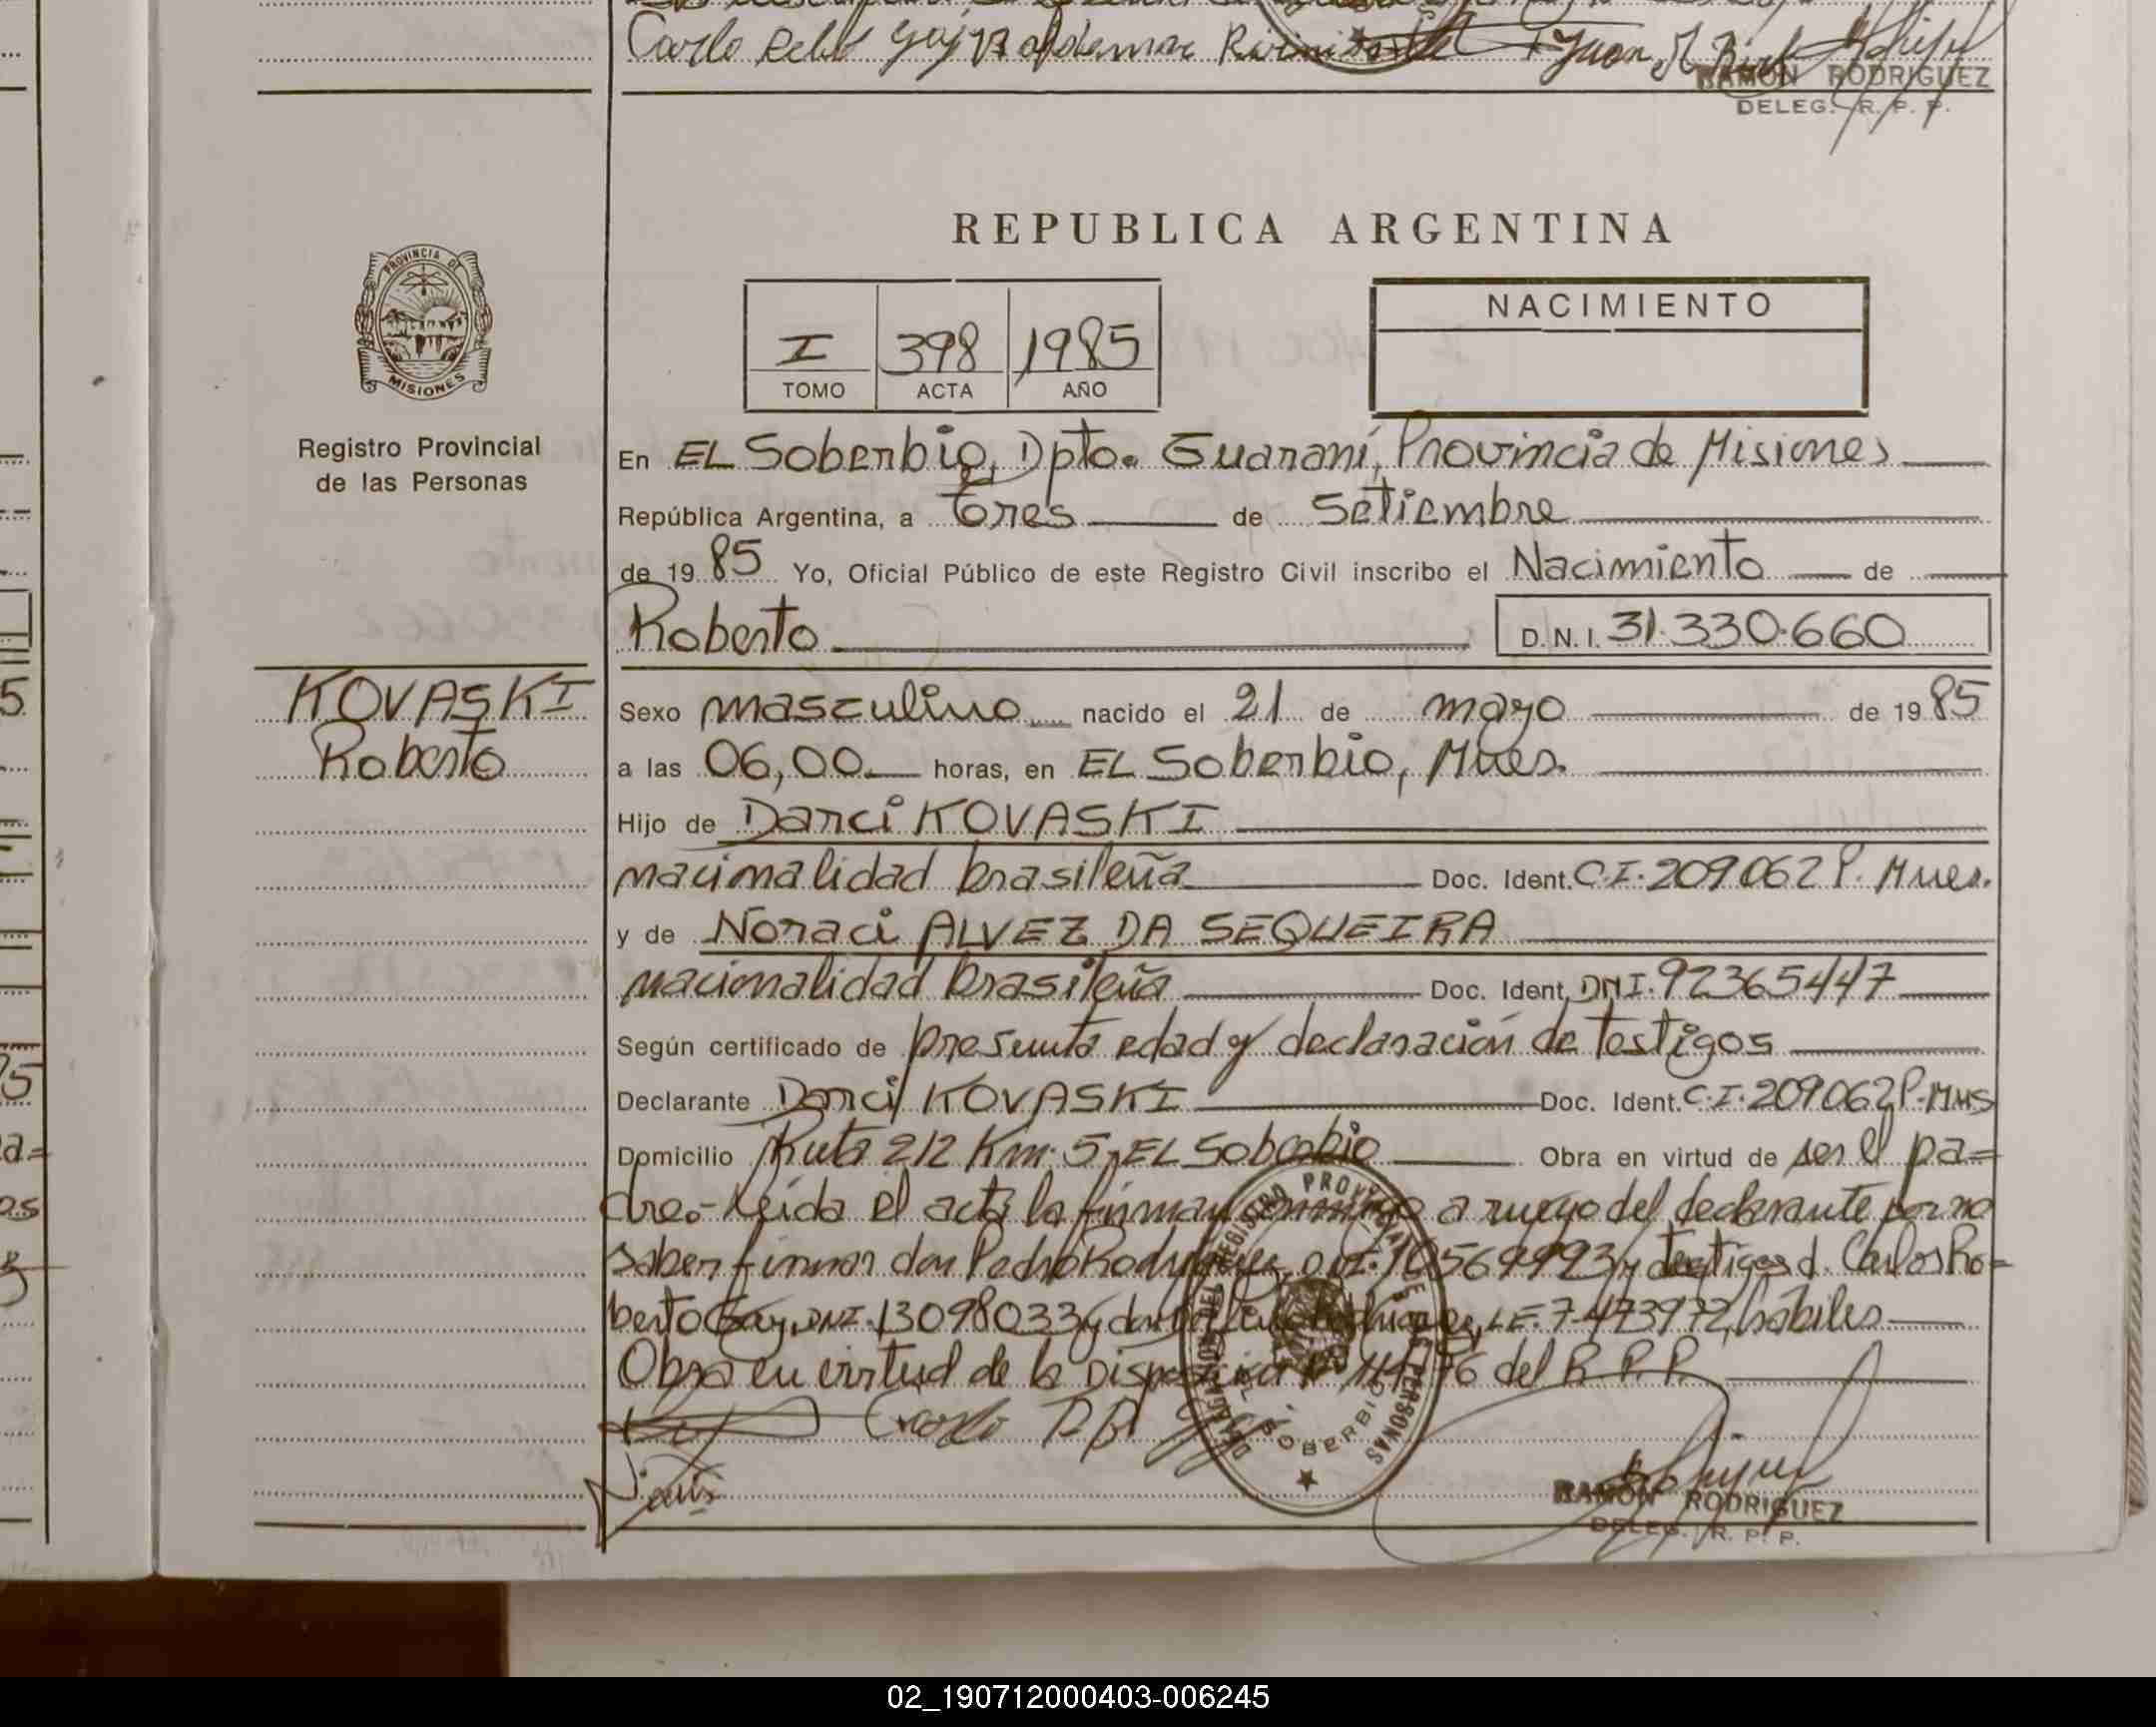 Carlo
RAMON RODRIGUEZ
DELEG. R. P. P.
REPUBLICA ARGENTINA
PROVINCIA DE
MISIONES
Registro Provincial
de las Personas
I 398 1985
TOMO ACTA AÑO
NACIMIENTO
En EL Soberbio, Dpto. Guaraní, Provincia de Misiones
República Argentina, a tres de Setiembre
de 1985 Yo, Oficial Público de este Registro Civil inscribo el Nacimiento de
Roberto D. N. I. 31.330.660
KOVASKI
Roberto
Sexo masculino nacido el 21 de mayo de 1985
a las 06,00 horas, en EL Soberbio, Mnes.
Hijo de Darci KOVASKI
nacionalidad brasileña Doc. Ident. C.I. 209062 P. Mnes.
y de Noraci ALVEZ DA SEQUEIRA
nacionalidad brasileña Doc. Ident. DNI. 92365447
Según certificado de presunta edad y declaración de testigos
Declarante Darci KOVASKI Doc. Ident. C.I. 209062 P. Mns
Domicilio Ruta 212 Km. 5, EL Soberbio Obra en virtud de ser el pa=
dre.- Leída el acta la firman conmigo a ruego del declarante por no
saber firmar don Pedro Rodriguez, y testigos d. Carlos Ro=
berto Gay, DNI. 13098033 y don LE. 7473972, hábiles
Obra en virtud de la Disposición del R. P. P.
Carlo
EL SOBERBIO
RAMON RODRIGUEZ
DELEG. R. P. P.
02_190712000403-006245